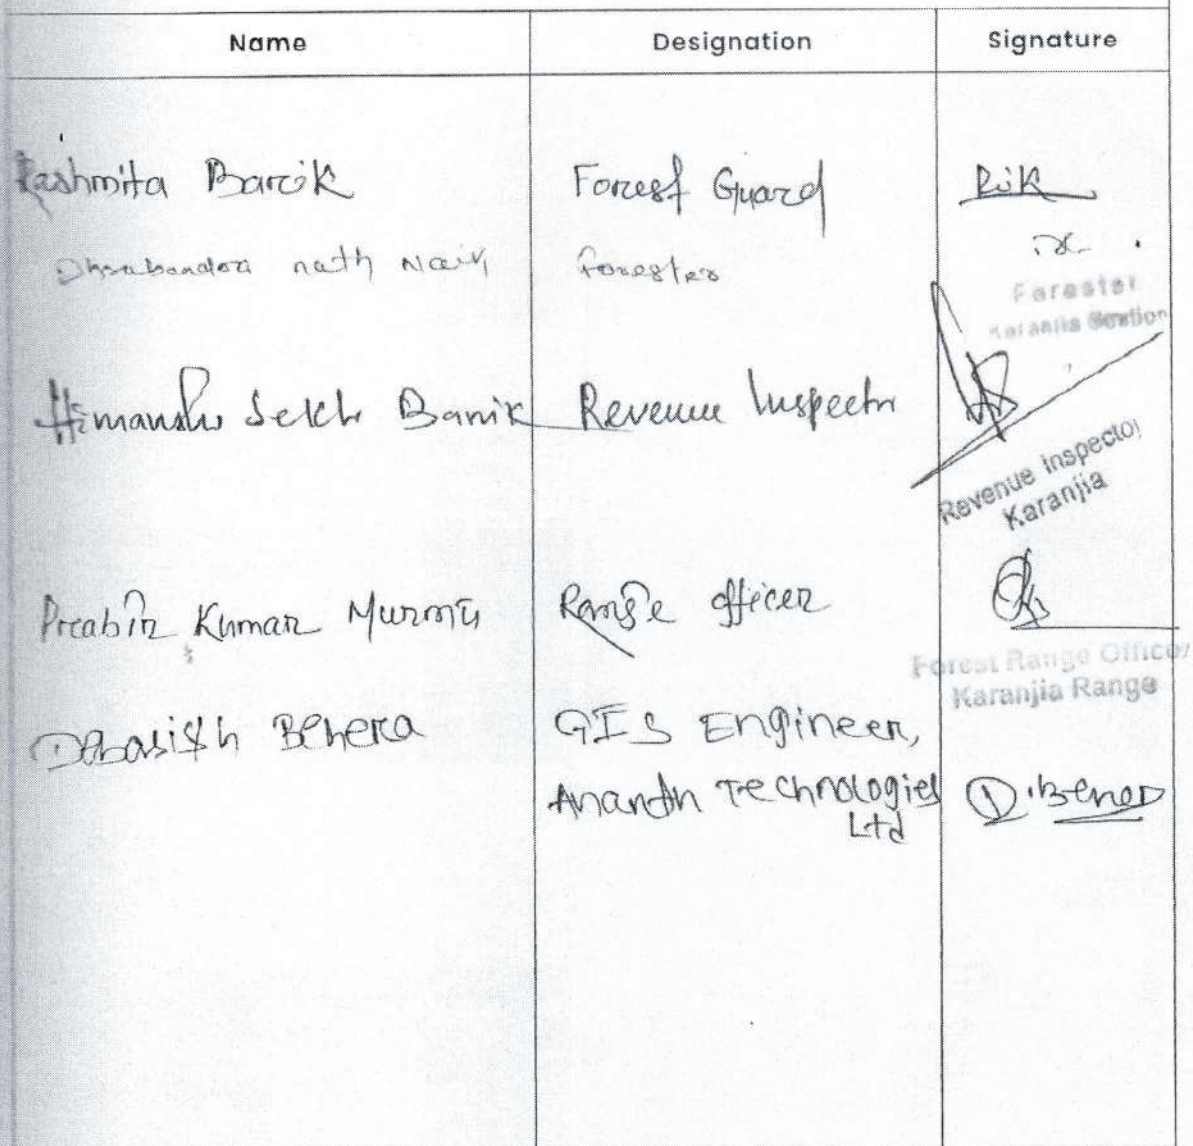 Name Designation Signature
Rashmita Barik Forest Guard
nath Naik Forester
Forester
Karanjia Section
Himanshu Sekh Barik Revenue Inspector
Revenue Inspector
Karanjia
Prabir Kumar Murmu Range officer
Forest Range Officer
Karanjia Range
Debasish Behera GIS Engineer,
Ananth Technologies D.Behera
Ltd